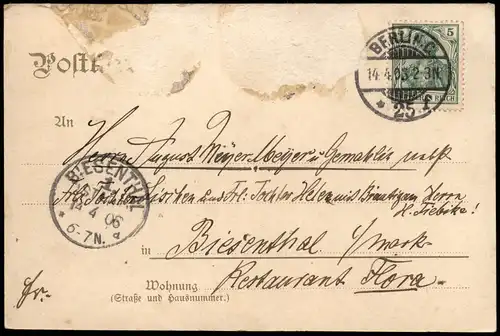 Postk
BERLIN.C.
14.4.03.2-3N.
* 25 f
5
REICH
An
Herrn August Meyer und Gemahlin nebst
und Frl. Tochter Helene mit Bräutigam Herrn
H. Fiebike!
BIESENTHAL
14 4 06
* 6-7N.
in Biesenthal i/mark
Restaurant Flora.
Wohnung
(Straße und Hausnummer.)
Fr.